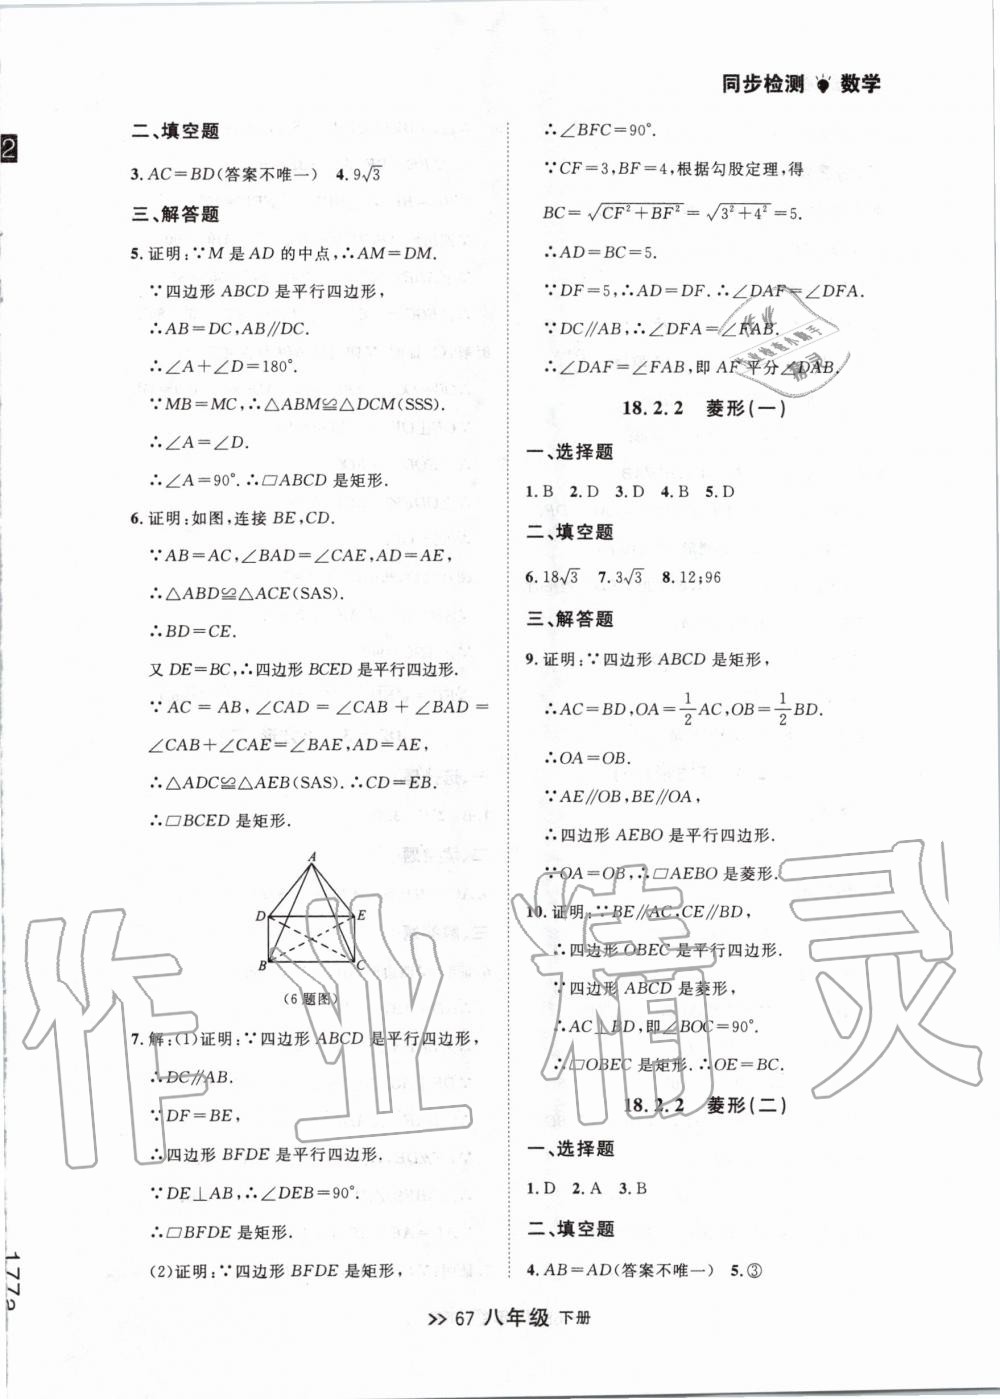 同步检测 数学
2
二、填空题
3. AC=BD(答案不唯一) 4. 9√3
三、解答题
5. 证明:∵M 是 AD 的中点,∴AM=DM.
∵四边形 ABCD 是平行四边形,
∴AB=DC,AB∥DC.
∴∠A+∠D=180°.
∵MB=MC,∴△ABM≌△DCM(SSS).
∴∠A=∠D.
∴∠A=90°.∴□ABCD 是矩形.
6. 证明:如图,连接 BE,CD.
∵AB=AC,∠BAD=∠CAE,AD=AE,
∴△ABD≌△ACE(SAS).
∴BD=CE.
又 DE=BC,∴四边形 BCED 是平行四边形.
∵AC = AB,∠CAD = ∠CAB + ∠BAD =
∠CAB+∠CAE=∠BAE,AD=AE,
∴△ADC≌△AEB(SAS).∴CD=EB.
∴□BCED 是矩形.
A
D E
B C
(6题图)
7. 解:(1)证明:∵四边形 ABCD 是平行四边形,
∴DC∥AB.
∵DF=BE,
∴四边形 BFDE 是平行四边形.
∵DE⊥AB,∴∠DEB=90°.
∴□BFDE 是矩形.
(2)证明:∵四边形 BFDE 是矩形,
∴∠BFC=90°.
∵CF=3,BF=4,根据勾股定理,得
BC=√(CF²+BF²)=√(3²+4²)=5.
∴AD=BC=5.
∵DF=5,∴AD=DF.∴∠DAF=∠DFA.
∵DC∥AB,∴∠DFA=∠FAB.
∴∠DAF=∠FAB,即 AF 平分∠DAB.
18.2.2 菱形(一)
一、选择题
1. B 2. D 3. D 4. B 5. D
二、填空题
6. 18√3 7. 3√3 8. 12;96
三、解答题
9. 证明:∵四边形 ABCD 是矩形,
∴AC=BD,OA=1/2AC,OB=1/2BD.
∴OA=OB.
∵AE∥OB,BE∥OA,
∴四边形 AEBO 是平行四边形.
∵OA=OB,∴□AEBO 是菱形.
10. 证明:∵BE∥AC,CE∥BD,
∴四边形 OBEC 是平行四边形.
∵四边形 ABCD 是菱形,
∴AC⊥BD,即∠BOC=90°.
∴□OBEC 是矩形.∴OE=BC.
18.2.2 菱形(二)
一、选择题
1. D 2. A 3. B
二、填空题
4. AB=AD(答案不唯一) 5. ③
>> 67 八年级 下册
作业精灵